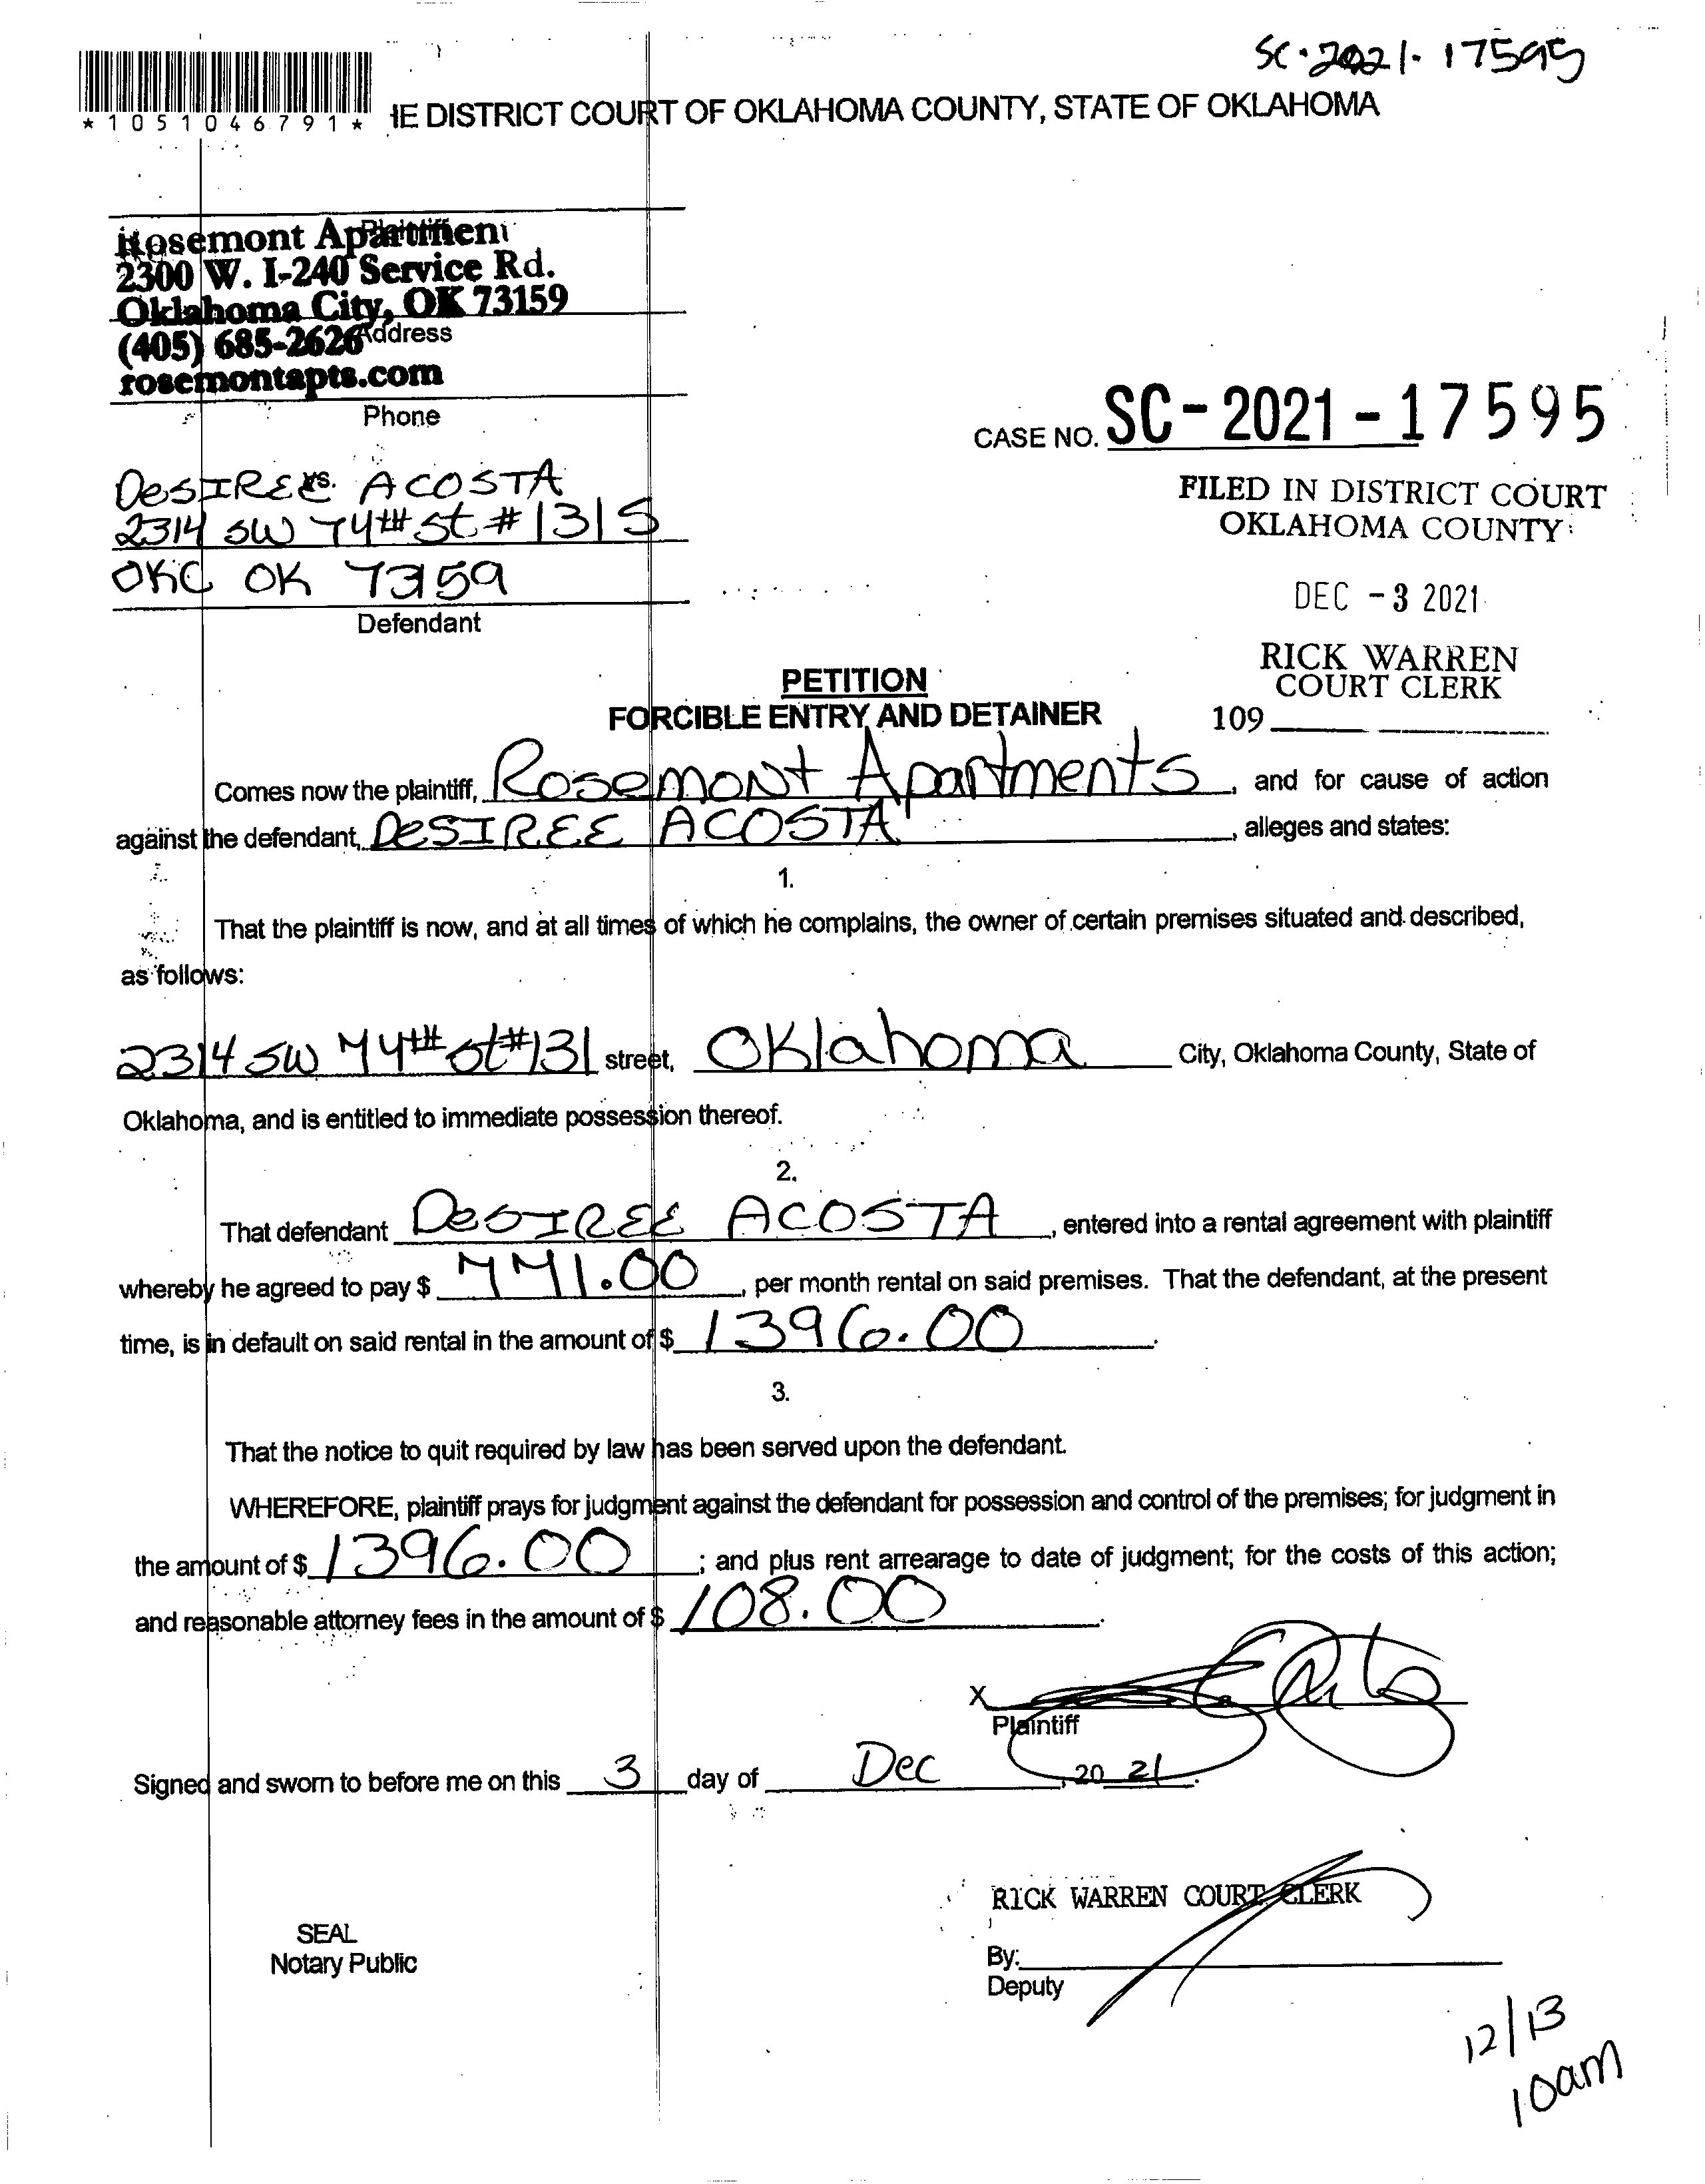 SC-2021-17595
*1051046791*
HE DISTRICT COURT OF OKLAHOMA COUNTY, STATE OF OKLAHOMA
Plaintiff
Rosemont Apartment
2300 W. I-240 Service Rd.
Oklahoma City, OK 73159
(405) 685-2626 Address
rosemontapts.com
Phone
CASE NO. SC-2021-17595
vs.
DESIREE ACOSTA
2314 SW 74th St #131S
OKC OK 73159
Defendant
FILED IN DISTRICT COURT
OKLAHOMA COUNTY
DEC -3 2021
RICK WARREN
COURT CLERK
109
PETITION
FORCIBLE ENTRY AND DETAINER
Comes now the plaintiff, Rosemont Apartments, and for cause of action
against the defendant, DESIREE ACOSTA, alleges and states:
1.
That the plaintiff is now, and at all times of which he complains, the owner of certain premises situated and described,
as follows:
2314 SW 74th St #131 street, Oklahoma City, Oklahoma County, State of
Oklahoma, and is entitled to immediate possession thereof.
2.
That defendant DESIREE ACOSTA, entered into a rental agreement with plaintiff
whereby he agreed to pay $ 771.00, per month rental on said premises. That the defendant, at the present
time, is in default on said rental in the amount of $ 1396.00.
3.
That the notice to quit required by law has been served upon the defendant.
WHEREFORE, plaintiff prays for judgment against the defendant for possession and control of the premises; for judgment in
the amount of $ 1396.00; and plus rent arrearage to date of judgment; for the costs of this action;
and reasonable attorney fees in the amount of $ 108.00.
X
Plaintiff
Signed and sworn to before me on this 3 day of Dec, 20 21.
RICK WARREN COURT CLERK
SEAL
Notary Public
By:
Deputy
12/13
10am